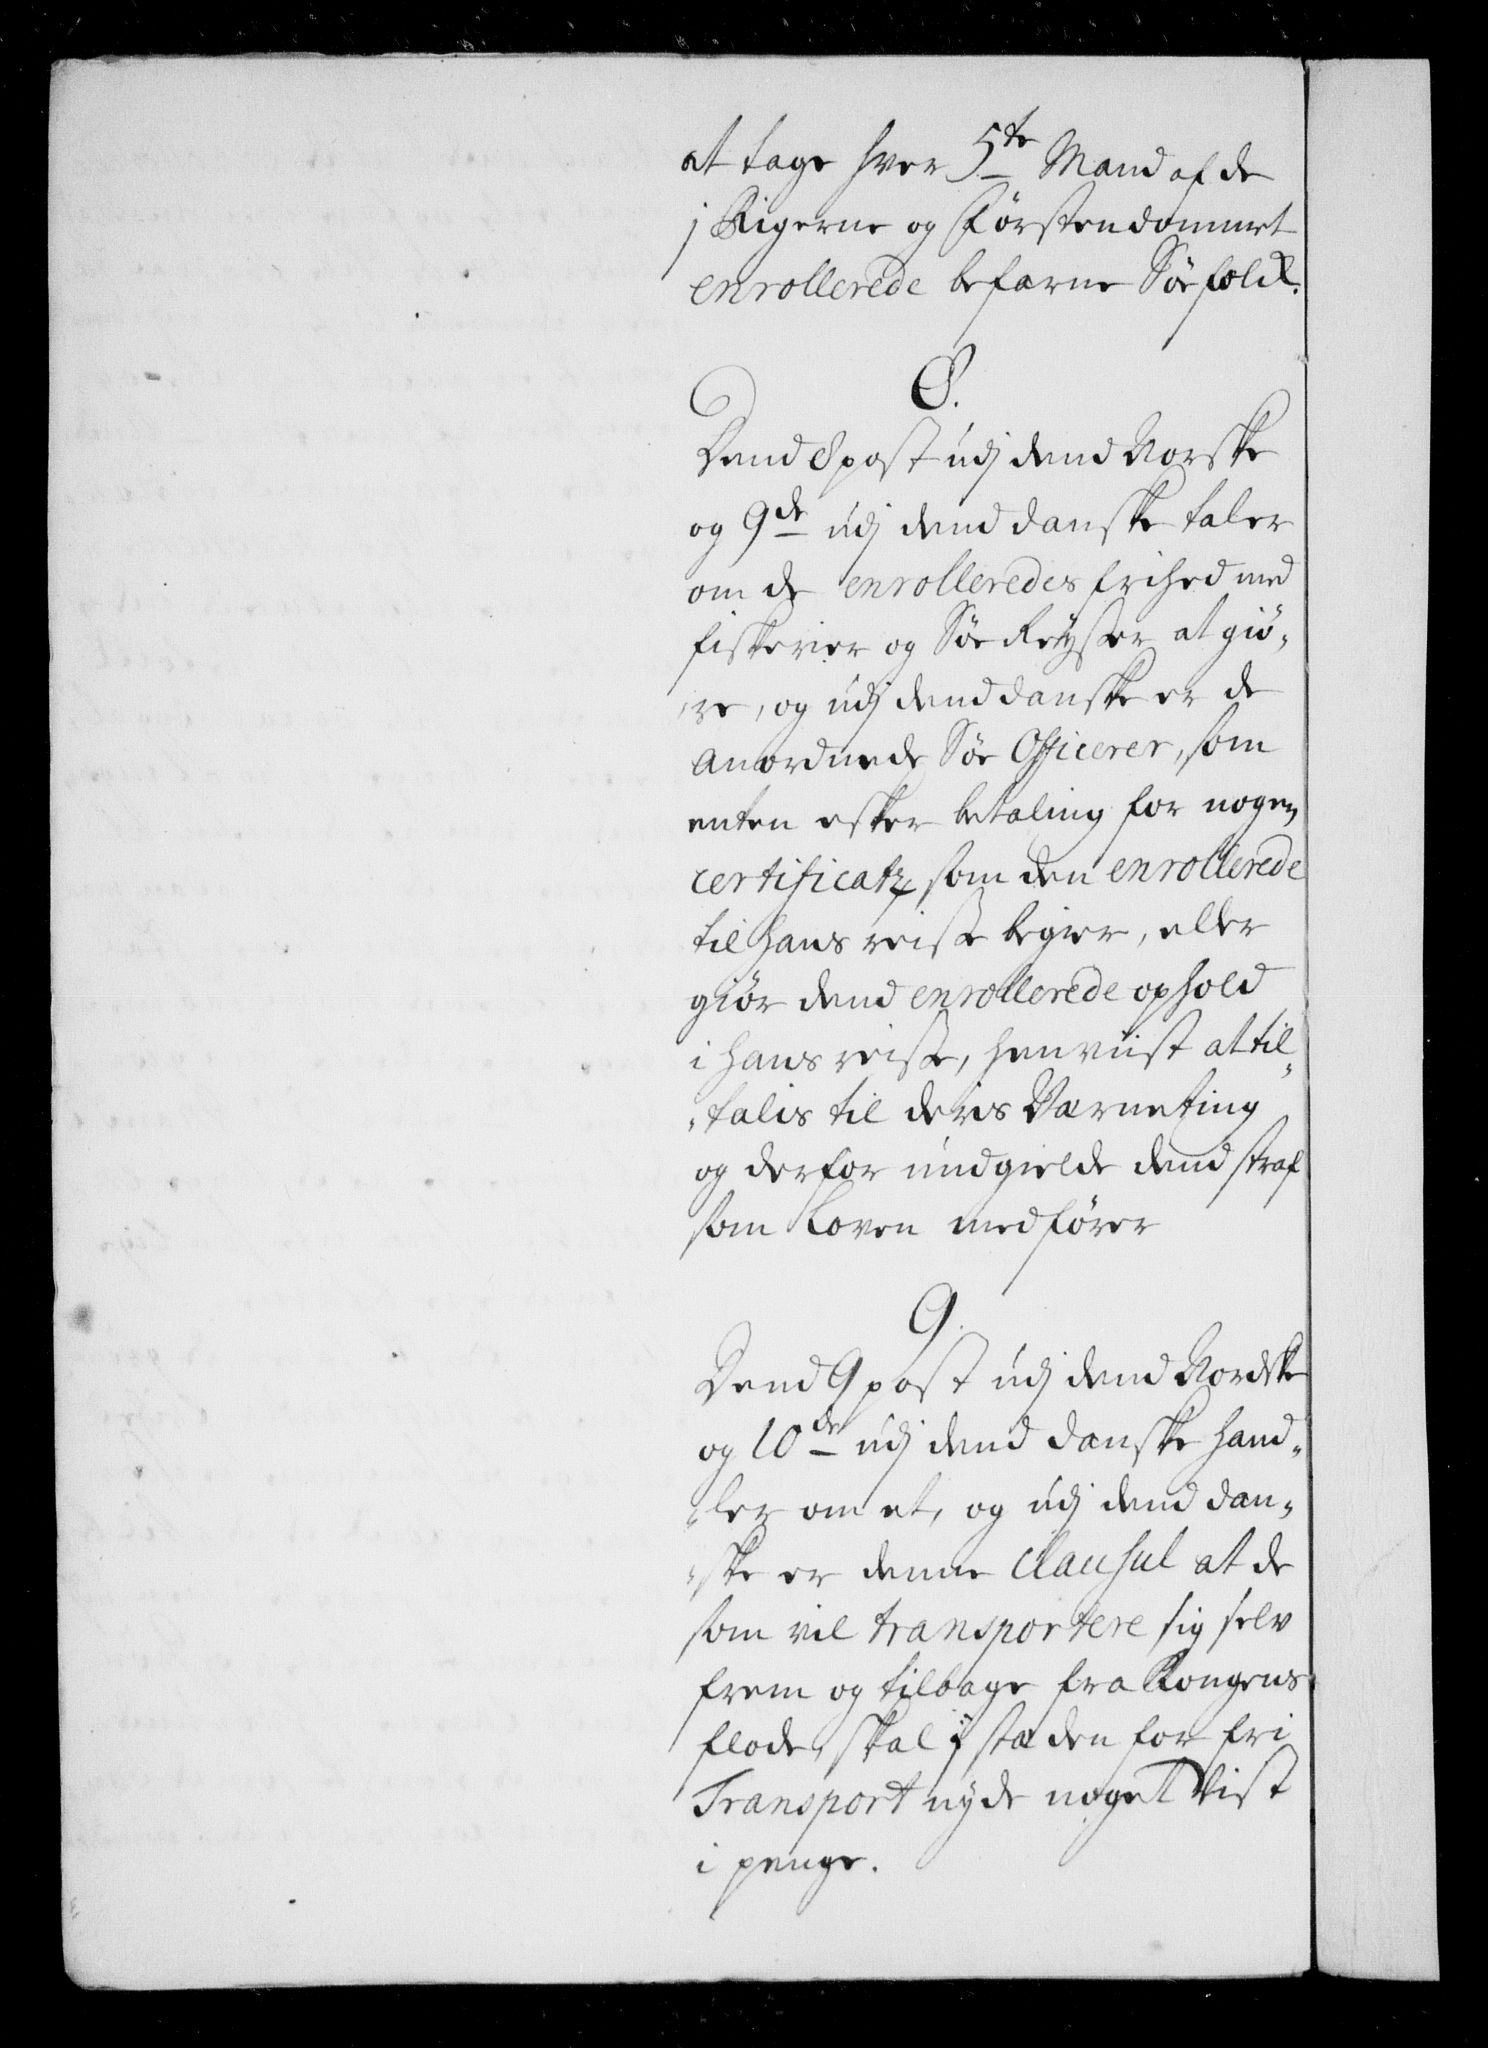 at tage hver 5te Mand af de
j Rigerne og Förstendommet
enrollerede befarne Söefolck.
8.
Dend 8 post udj dend Norske
og 9de udj dend danske taler
om de enrolleredes frihed med
fiskerier og Söe Reÿser at giö¸
¸re, og udj dend danske er de
anordnede Söe Officerer, som
enten esker betaling for nogen
certificatz som den enrollerede
til hans reise begier, eller
giör dend enrollerede ophold
i hans reise, henviist at til„
„talis til deris Værneting
og derfor undgielde dend straf
som Loven medförer
9.
Dend 9 post udj dend Nordske
og 10de udj dend danske hand„
„ler om et, og udj dend dan„
„ske er denne Clausul at de
som vil transportere sig selv
frem og tilbage fra Kongens
flode, skal j stæden for fri
Transport nyde noget Vist
i penge.